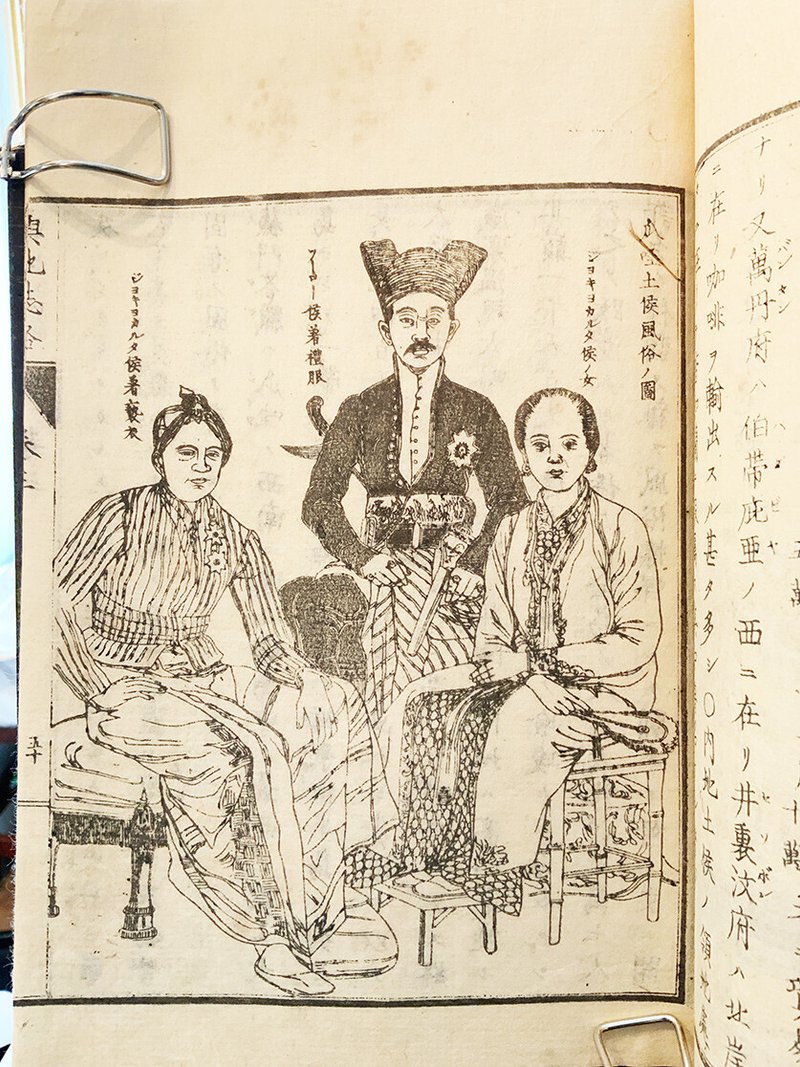 ナリ又萬丹府ハ伯帯庇亜ノ西ニ在リ井裏汶府ハ北岸
ニ在リ咖啡ヲ輸出スル甚タ多シ○内地土侯ノ領地
瓜哇土侯風俗ノ圖
ジヨキヨカルタ侯ノ女
ソーロー侯著禮服
ジヨキヨカルタ侯著褻衣
輿地誌畧
五十